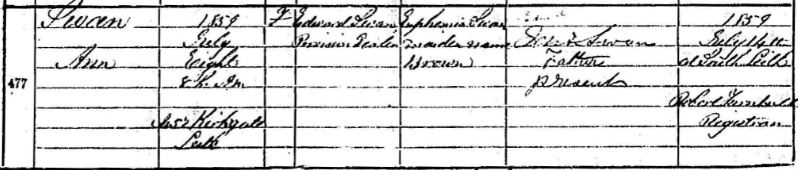 477
Swan
Ann
1859
July
Eight
8h. Am
No 52 Kirkgate
Leith
F
Edward Swan
Provision Dealer
Euphemia Swan
maiden name
Brown
Swan
Father
present
1859
July 14th
at South Leith
Robert Turnbull
Registrar